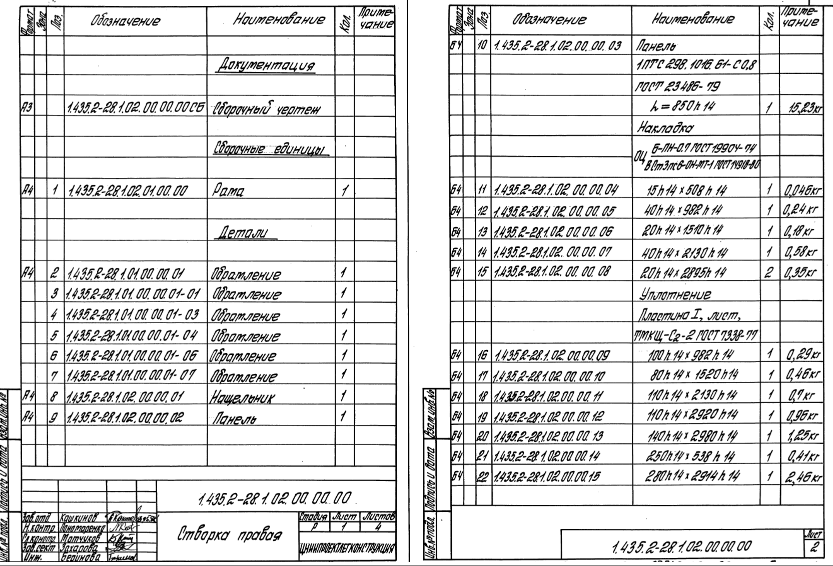 Формат Зона Поз. Обозначение Наименование Кол. Приме-
чание
Документация
А3 1.435.2-28.1.02.00.00.00СБ Сборочный чертеж
Сборочные единицы
А4 1 1.435.2-28.1.02.01.00.00 Рама 1
Детали
А4 2 1.435.2-28.1.01.00.00.01 Обрамление 1
3 1.435.2-28.1.01.00.00.01-01 Обрамление 1
4 1.435.2-28.1.01.00.00.01-03 Обрамление 1
5 1.435.2-28.1.01.00.00.01-04 Обрамление 1
6 1.435.2-28.1.01.00.00.01-06 Обрамление 1
7 1.435.2-28.1.01.00.00.01-07 Обрамление 1
А4 8 1.435.2-28.1.02.00.00.01 Нащельник 1
А4 9 1.435.2-28.1.02.00.00.02 Панель 1
1.435.2-28.1.02.00.00.00
Зав.отд Кашкинов
Н.контр. Пономаренко
Рук.констр. Матчиков
Зав.сект Захарова
Инж.
Створка правая
Стадия Лист Листов
Р 1 4
ЦНИИПРОЕКТЛЕГКОНСТРУКЦИЯ
Взам.инв.№
Подпись и дата
Инв.№ подл.
Формат Зона Поз. Обозначение Наименование Кол. Приме-
чание
БЧ 10 1.435.2-28.1.02.00.00.03 Панель
1ПТС 298.1016.61-С0,8
ГОСТ 23486-79
L = 850 h 14 1 15,23кг
Накладка
ОЦ Б-ПН-0.7 ГОСТ 19904-74
ВСт3пс6-ОН-МТ-1 ГОСТ 14918-80
БЧ 11 1.435.2-28.1.02.00.00.04 15 h 14 х 508 h 14 1 0,046кг
БЧ 12 1.435.2-28.1.02.00.00.05 40 h 14 х 982 h 14 1 0,24кг
БЧ 13 1.435.2-28.1.02.00.00.06 20 h 14 х 1510 h 14 1 0,18кг
БЧ 14 1.435.2-28.1.02.00.00.07 40 h 14 х 2130 h 14 1 0,58кг
БЧ 15 1.435.2-28.1.02.00.00.08 20 h 14 х 2895 h 14 2 0,35кг
Уплотнение
Пластина I, лист,
ТМКЩ-С2-2 ГОСТ 7338-77
БЧ 16 1.435.2-28.1.02.00.00.09 100 h 14 х 982 h 14 1 0,29кг
БЧ 17 1.435.2-28.1.02.00.00.10 80 h 14 х 1520 h 14 1 0,46кг
БЧ 18 1.435.2-28.1.02.00.00.11 110 h 14 х 2130 h 14 1 0,7кг
БЧ 19 1.435.2-28.1.02.00.00.12 110 h 14 х 2920 h 14 1 0,96кг
БЧ 20 1.435.2-28.1.02.00.00.13 140 h 14 х 2980 h 14 1 1,25кг
БЧ 21 1.435.2-28.1.02.00.00.14 250 h 14 х 538 h 14 1 0,41кг
БЧ 22 1.435.2-28.1.02.00.00.15 280 h 14 х 2914 h 14 1 2,46кг
Взам.инв.№
Подпись и дата
Инв.№ подл.
1.435.2-28.1.02.00.00.00
Лист
2